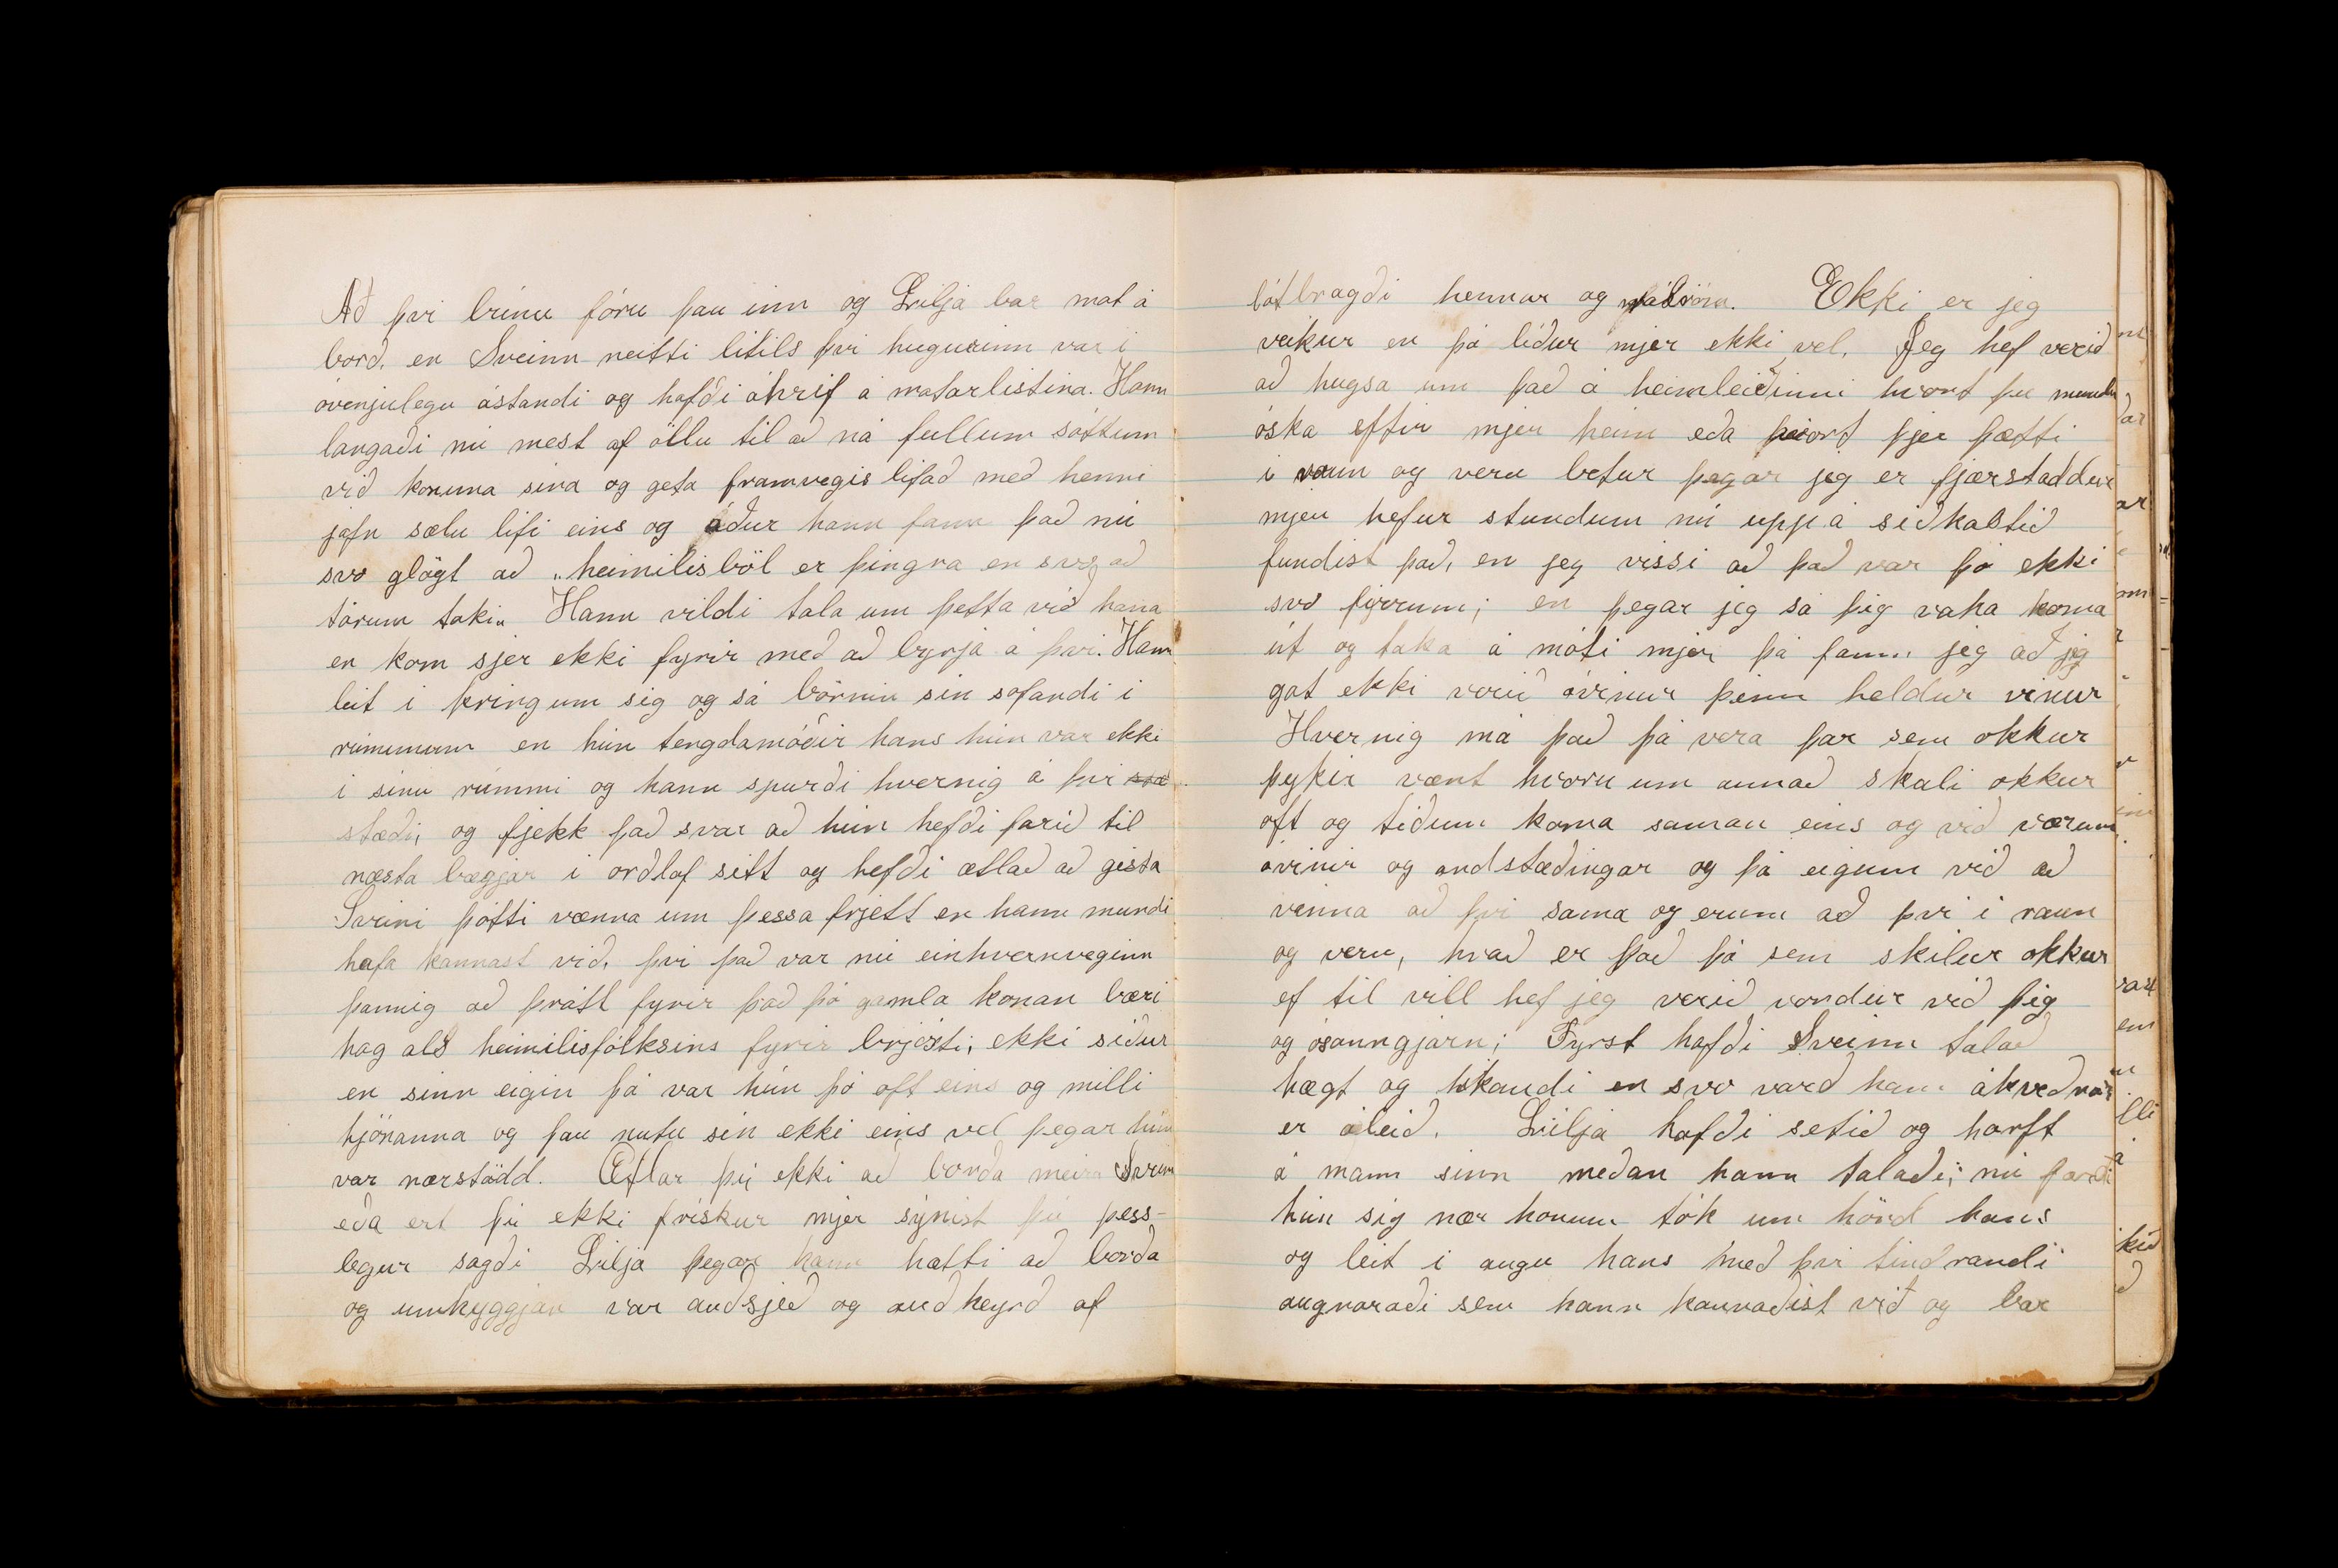 Að því brínu fóru þau inn og Lilja bar mat á
borð, en Sveinn neitti lítils því hugurinn var í
óvenjulegu ástandi og hafði áhrif á matarlistina. Hann
langaði nú mest af öllu til að ná fullum sáttum
við konuna sína og geta framvegis lifað með henni
jafn sælu lífi eins og áður hann fann það nú
svo glögt að „heimilisböl er þingra en svo að
tárum taki„ Hann vildi tala um þetta við hana
en kom sjer ekki fyrir með að byrja á því. Hann
leit í kringum sig og sá börnin sín sofandi í
rúmunum en hún tengdamóðir hans hún var ekki
í sínu rúmmi og hann spurði hvernig á því
stæði, og fjekk það svar að hún hefði farið til
næsta bæjar í orðlof sitt og hefði ætlað að gista
Sveini þótti vænna um þessa frjett en hann mundi
hafa kannast við, því það var nú einhvernveginn
þannig að þrátt fyrir það þó gamla konan bæri
hag als heimilisfólksins fyrir brjósti, ekki síður
en sinn eigin þá var hún þó oft eins og milli
hjónanna og þau nutu sín ekki eins vel þegar hún
var nærstödd. Ætlar þú ekki að borða meira Sveinn
eða ert þú ekki frískur mjer sýnist þú þess-
legur sagði Lilja þegar hann hætti að borða
og umhyggjan var auðsjeð og auðheyrð af
látbragði hennar og málróm. Ekki er jeg
veikur en þó líður mjer ekki vel. Jeg hef verið
að hugsa um það á heimleiðinni hvort þú mundir
óska eftir mjer heim eða hvort þjer þætti
í raun og veru betur þegar jeg er fjærstaddur
mjer hefur stundum nú uppá síðkastið
fundist það, en jeg vissi að það var þó ekki
svo fyrrum; en þegar jeg sá þig vaka koma
út og taka á móti mjer þá fann jeg að jeg
gat ekki verið óvinur þinn heldur vinur
Hvernig má það þá vera þar sem okkur
þykir vænt hvoru um annað skuli okkur
oft og tíðum koma saman eins og við værum
óvinir og andstæðingar og þá eigum við að
vinna að því sama og erum að því í raun
og veru, hvað er það þá sem skilur okkur
ef til vill hef jeg verið vondur við þig
og ósanngjarn; Fyrst hafði Sveinn talað
hægt og hikandi en svo varð hann ákveðnari
er áleið. Lilja hafði setið og horft
á mann sinn meðan hann talaði; nú færði
hún sig nær honum tók um hönd hans
og leit í augu hans með því tindrandi
augnaráði sem hann kannaðist við og bar